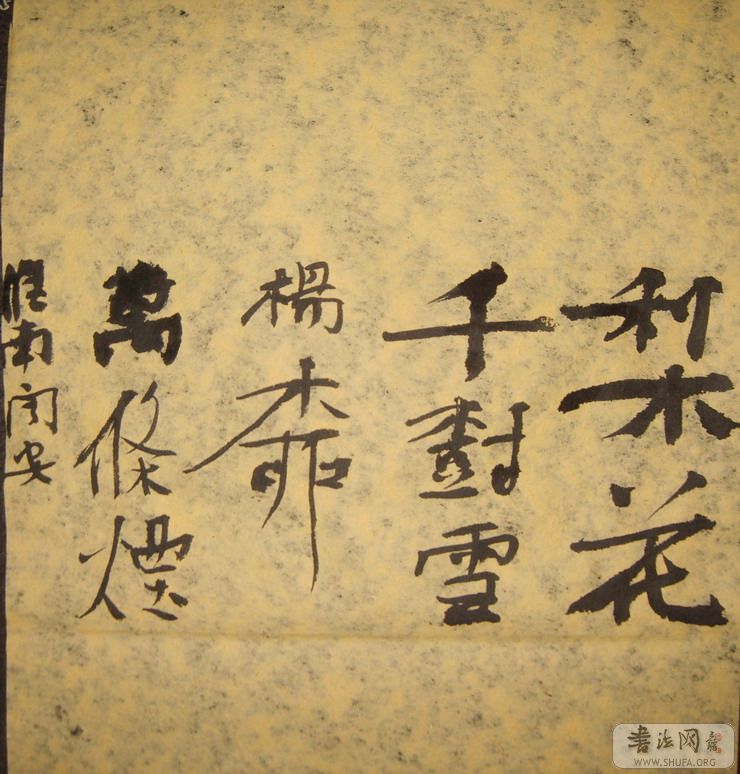 梨花
千樹雪
楊柳
萬條煙
南
安
書法网
WWW.SHUFA.ORG